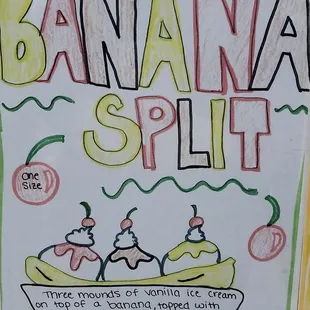 BANANA
SPLIT
One
Size
Three mounds of vanilla ice cream
on top of a banana, topped with